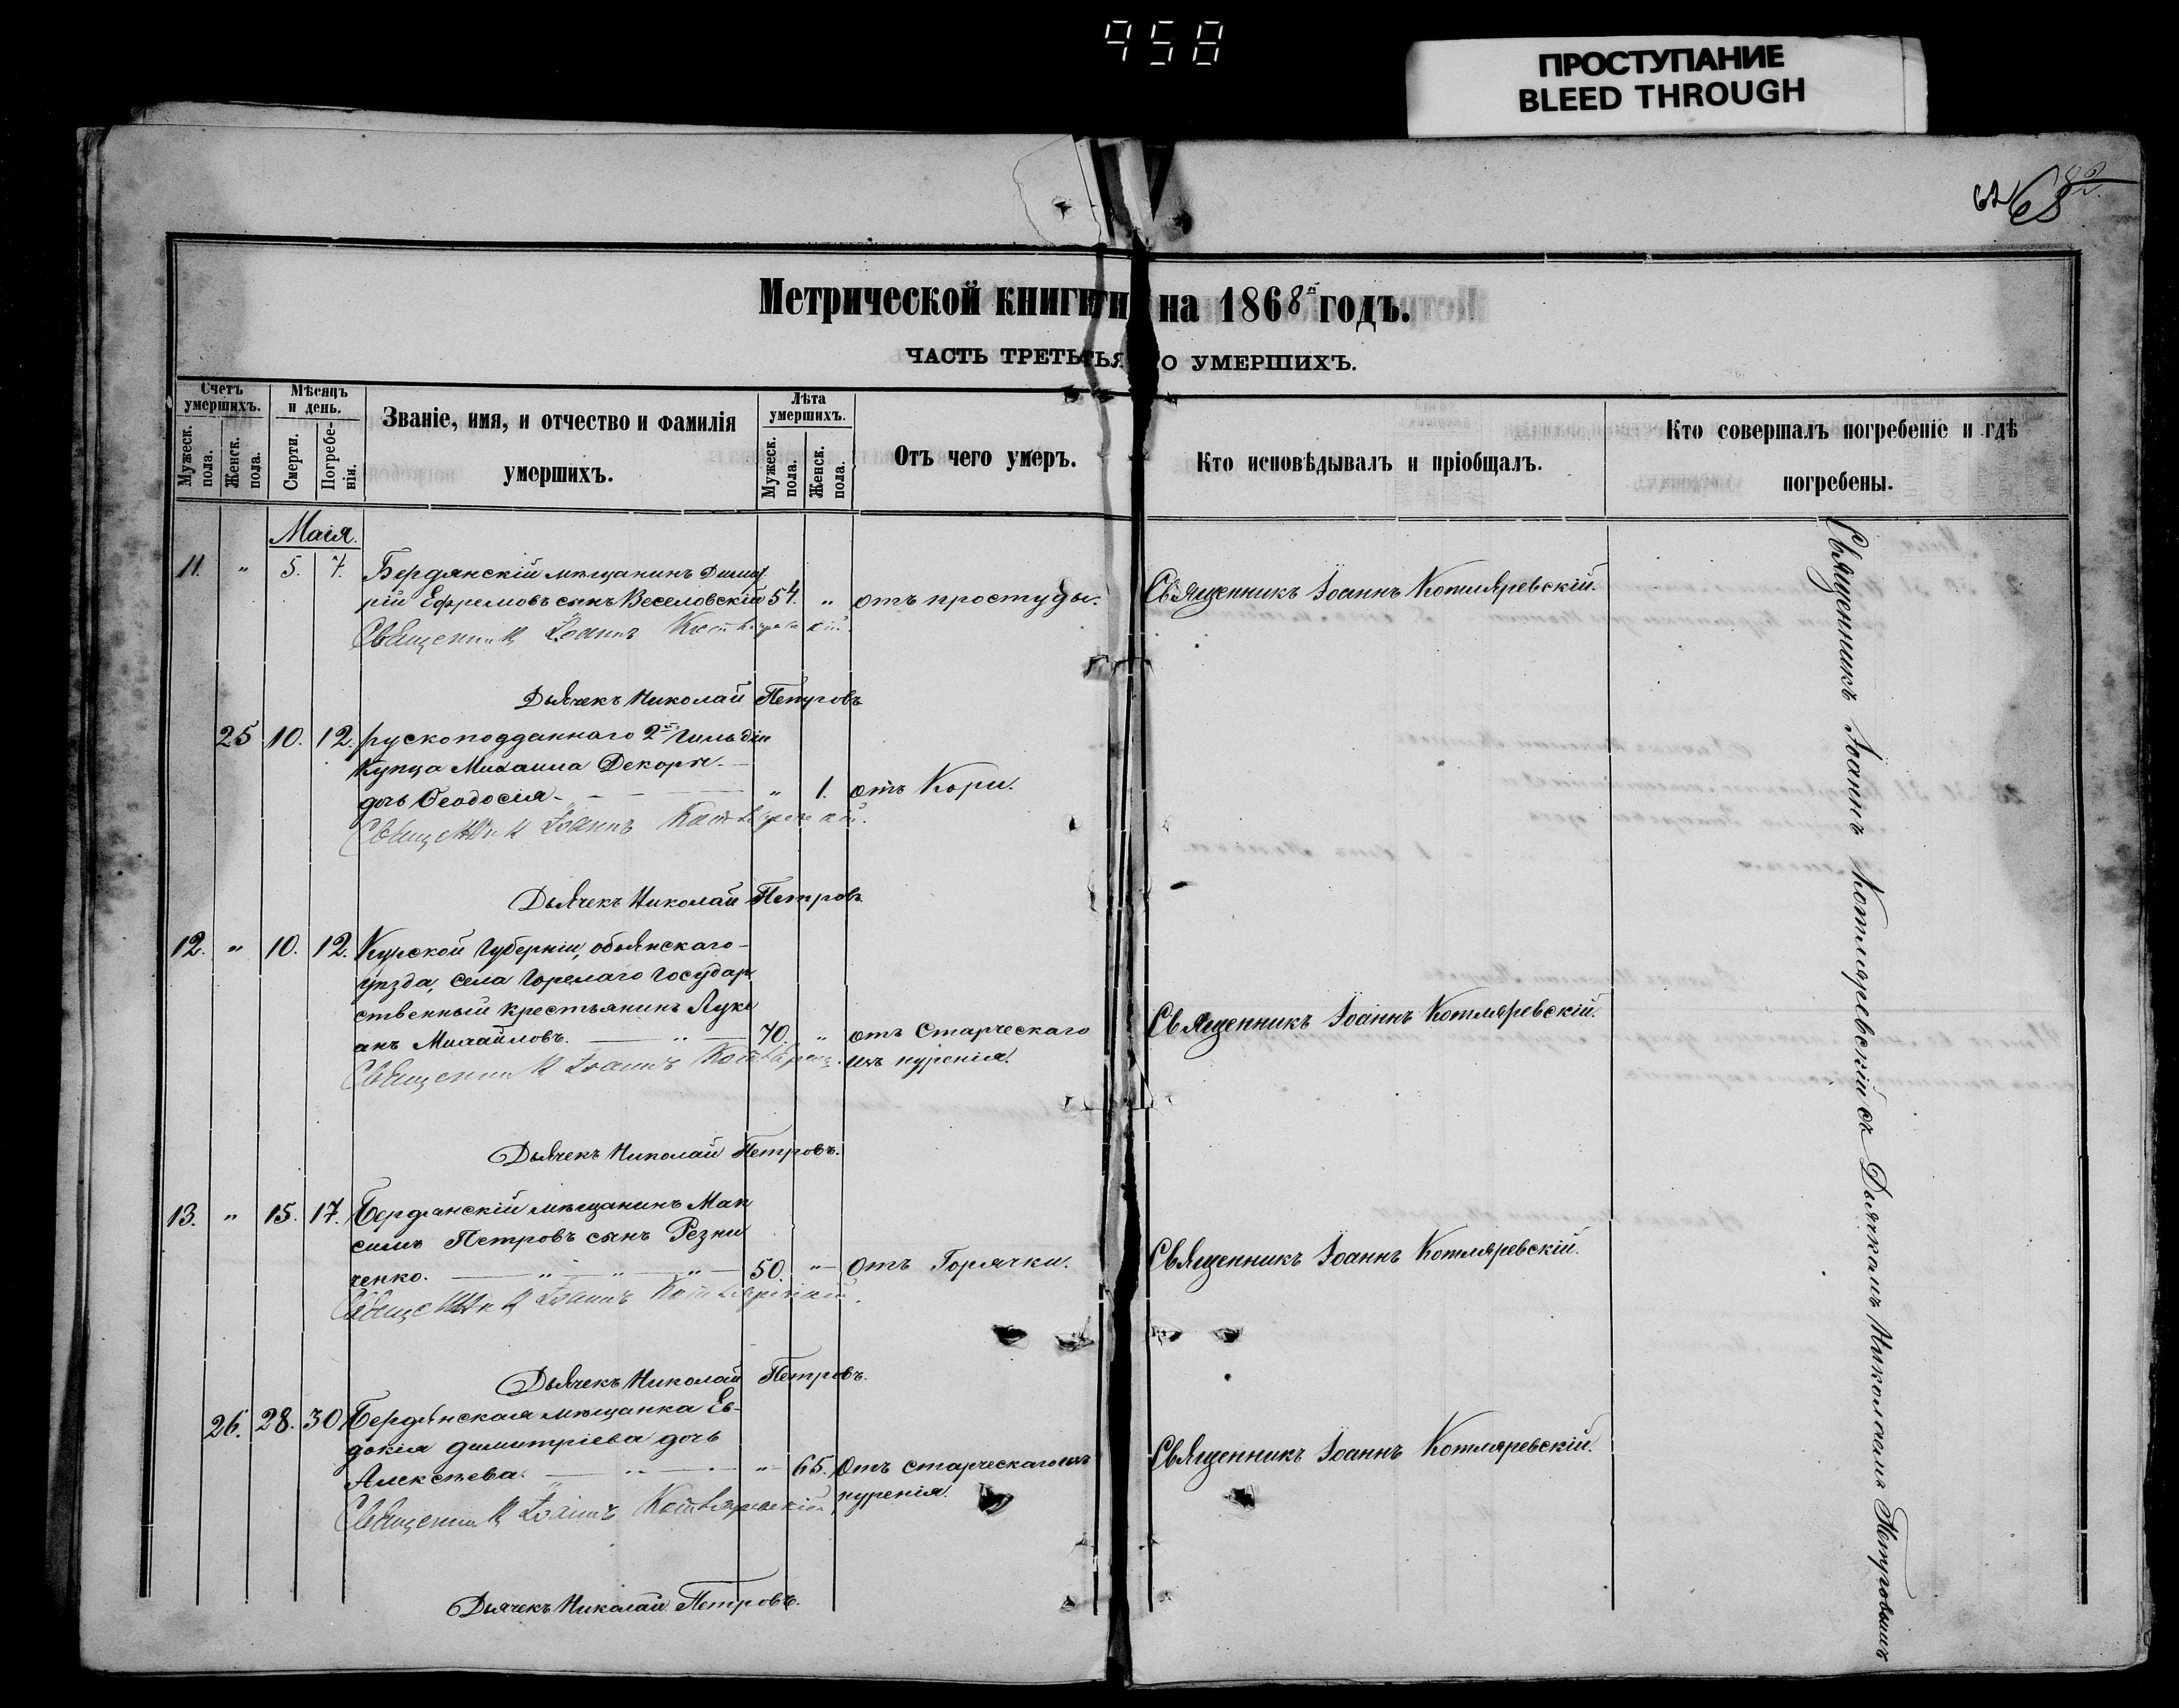 958
ПРОСТУПАНИЕ
BLEED THROUGH
Метрической книги на 1868й годъ.
ЧАСТЬ ТРЕТЬЯ О УМЕРШИХЪ.
Счетъ умершихъ.
Мужеск. пола.
Женск. пола.
Мѣсяцъ и день.
Смерти.
Погребенія.
Званіе, имя, и отчество и фамилія
умершихъ.
Лѣта умершихъ.
Мужеск. пола.
Женск. пола.
Отъ чего умеръ.
Кто исповѣдывалъ и пріобщалъ.
Кто совершалъ погребеніе и гдѣ
погребены.
Маія.
11. " 5. 7. Бердянскій мѣщанинъ Димит
рій Ефремовъ сынъ Веселовскій 54. " отъ простуды. Священникъ Іоаннъ Котляревскій.
Священникъ Іоаннъ Котляревскій
Дьячекъ Николай Петровъ
25 10. 12. рускоподданнаго 2й Гильдіи
Купца Михаила Декори
дочь Феодосія " 1. отъ Кори.
Священникъ Іоаннъ Котляревскій.
Дьячекъ Николай Петровъ
12. " 10. 12. Курской Губерніи, обоянскаго
уѣзда, села Горелаго Государ
ственный крестьянинъ Луке
анъ Михайловъ. 70. " отъ Старческаго Священникъ Іоаннъ Котляревскій.
изнуренія.
Священникъ Іоаннъ
Дьячекъ Николай Петровъ.
13. " 15. 17. Бердянскій мѣщанинъ Мак
симъ Петровъ сынъ Резни
ченко. 50. " отъ Горячки. Священникъ Іоаннъ Котляревскій.
Священникъ Іоаннъ Котляревскій.
Дьячекъ Николай Петровъ.
26. 28. 30 Бердянская мѣщанка Ев-
докія димитріева дочь
Алексѣева. " 65. Отъ старческаго из Священникъ Іоаннъ Котляревскій.
нуренія.
Священникъ Іоаннъ Котляревскій
Дьячекъ Николай Петровъ.
Священникъ Іоаннъ Котляревскій съ Дьячкомъ Николаемъ Петровымъ